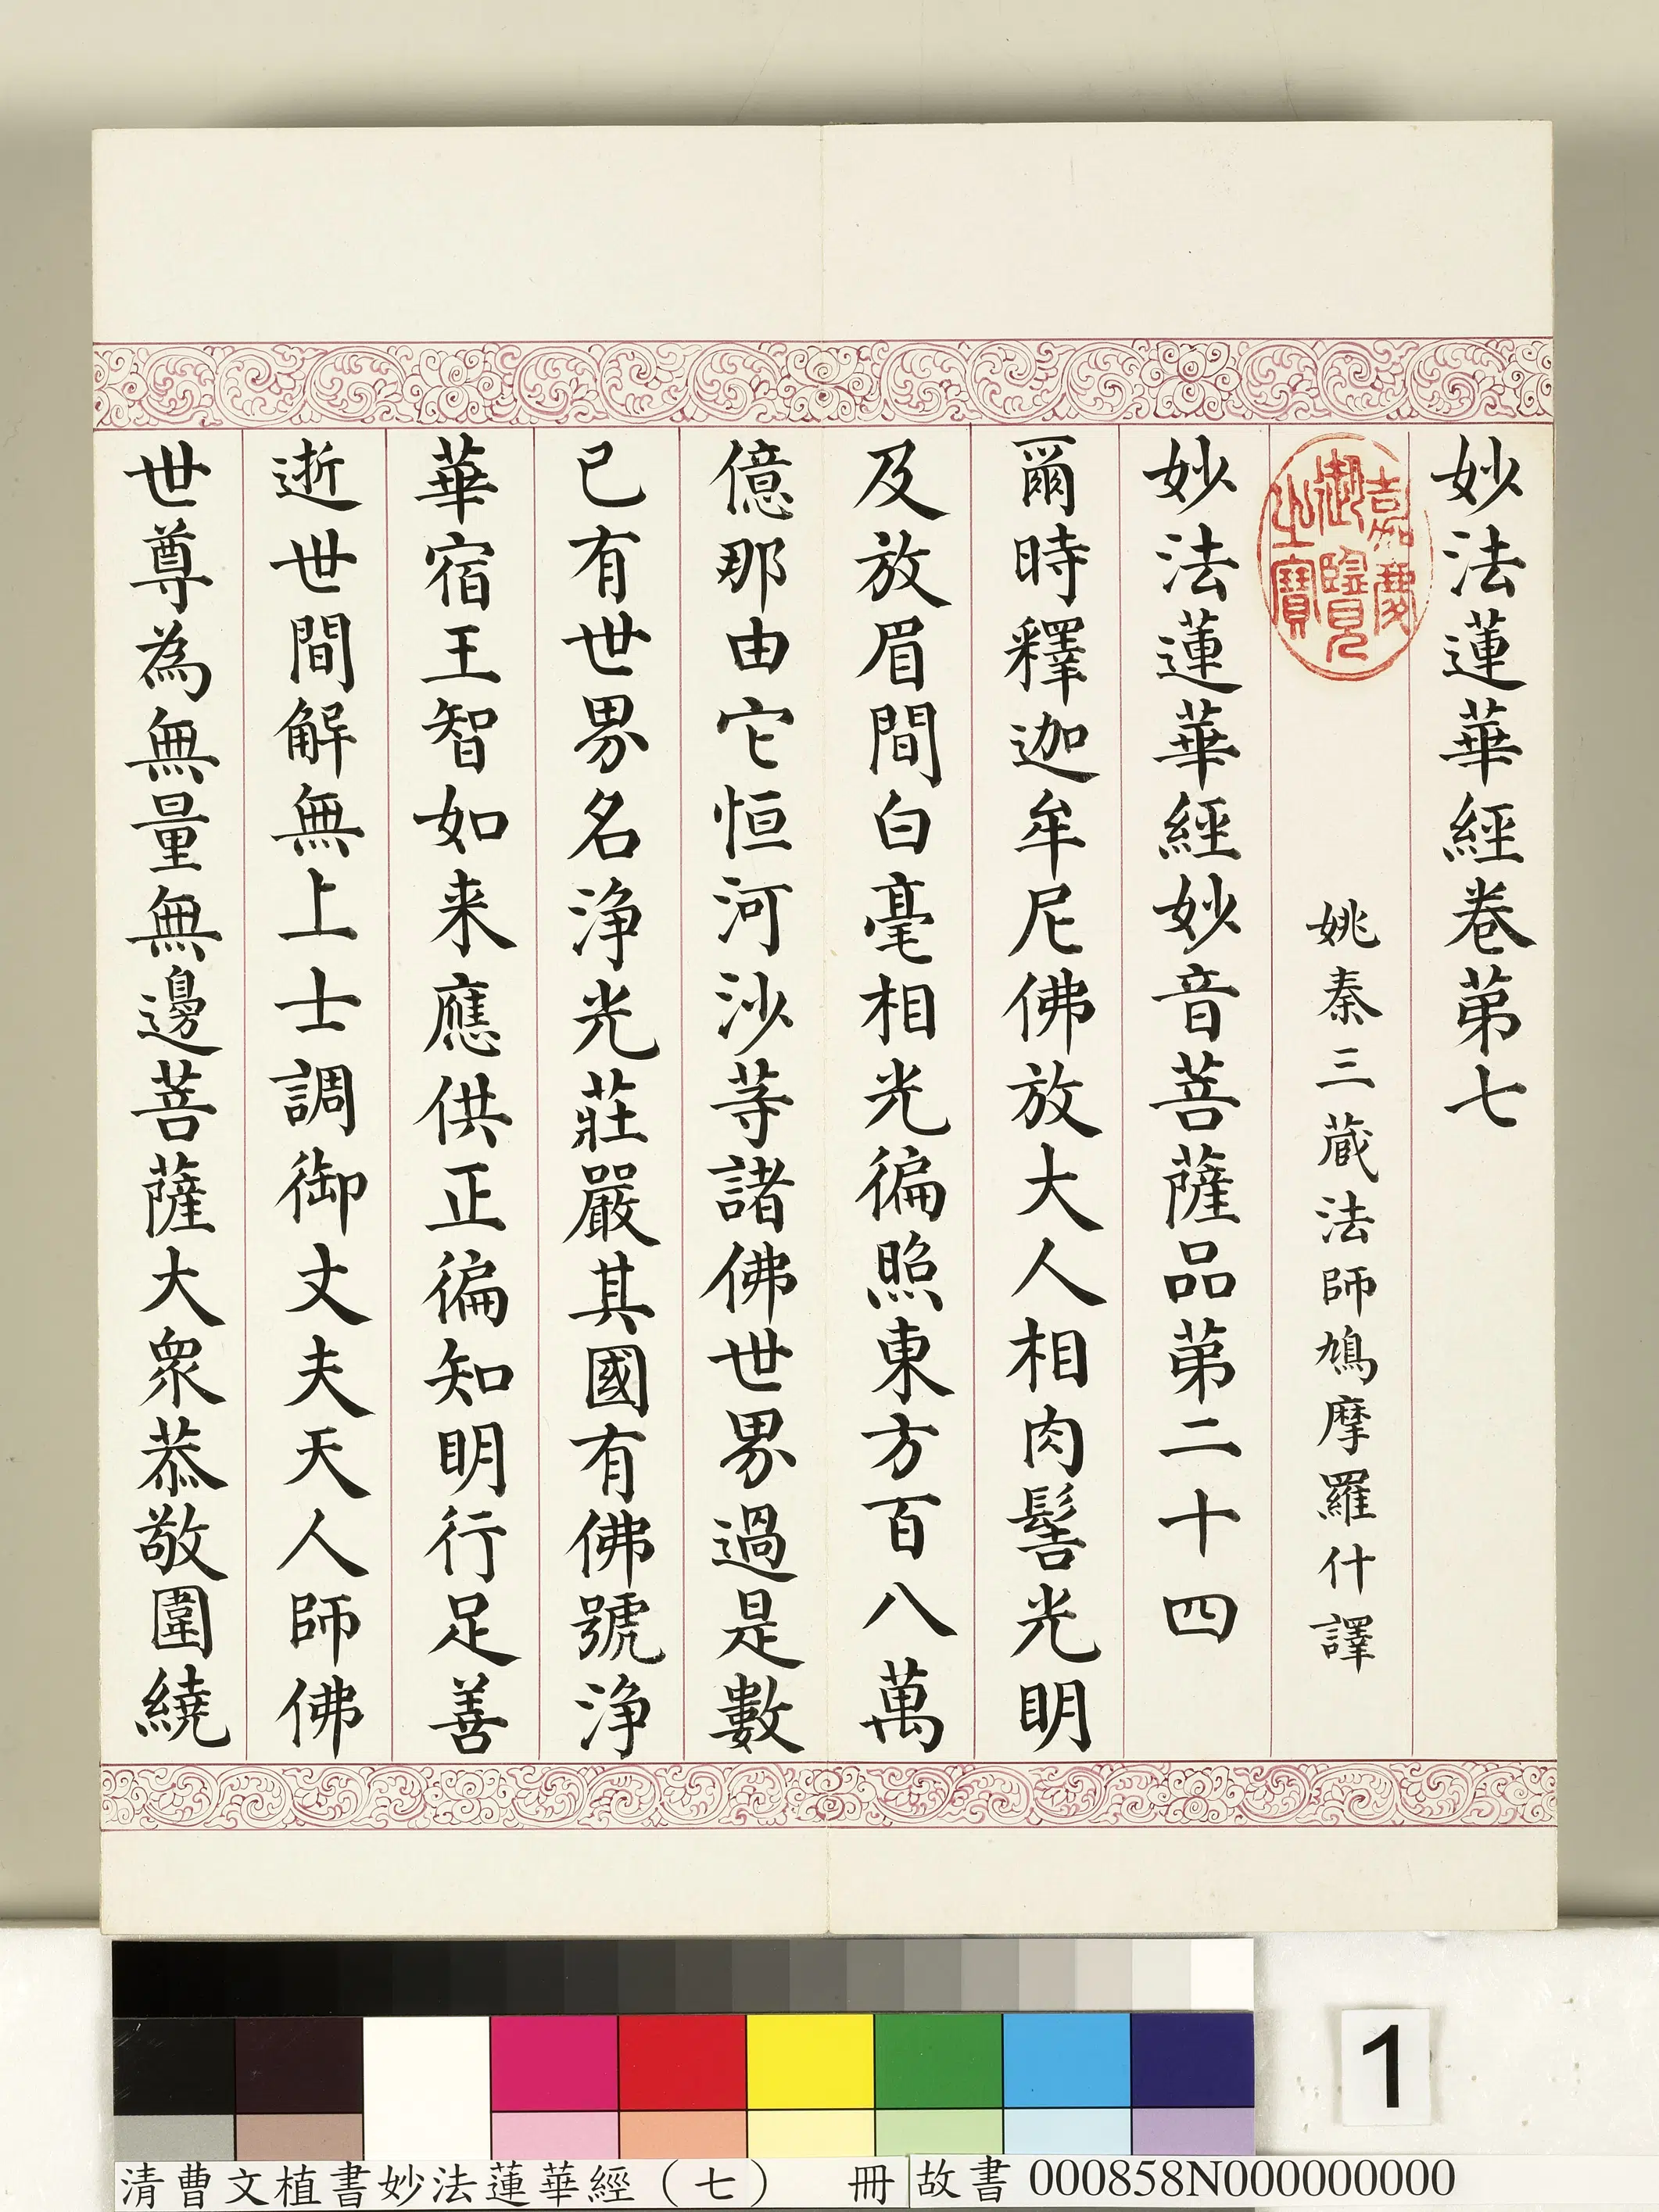 妙法蓮華經卷第七
嘉慶御覽之寶
姚秦三藏法師鳩摩羅什譯
妙法蓮華經妙音菩薩品第二十四
爾時釋迦牟尼佛放大人相肉髻光明
及放眉間白毫相光徧照東方百八萬
億那由它恒河沙等諸佛世界過是數
已有世界名淨光莊嚴其國有佛號淨
華宿王智如来應供正徧知明行足善
逝世間解無上士調御丈夫天人師佛
世尊為無量無邊菩薩大眾恭敬圍繞
1
清曹文植書妙法蓮華經（七） 冊 故書 000858N000000000